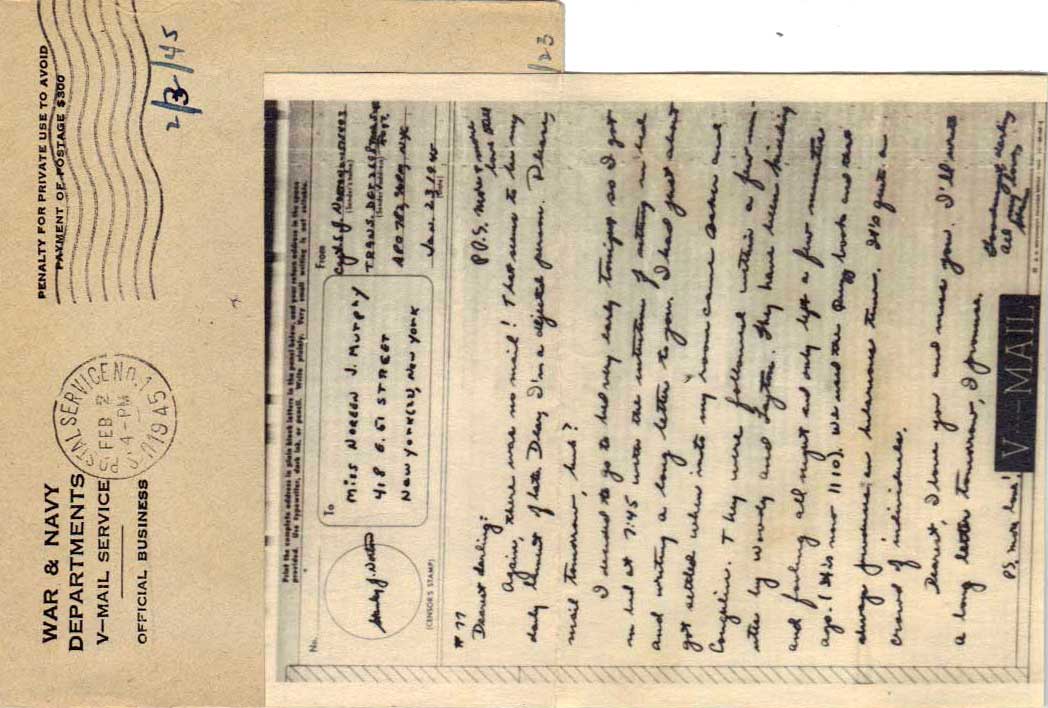 WAR & NAVY
DEPARTMENTS
V-MAIL SERVICE
OFFICIAL BUSINESS
PENALTY FOR PRIVATE USE TO AVOID
PAYMENT OF POSTAGE $300
U.S. POSTAL SERVICE NO. 1
FEB 2
4-PM
1945
2/3/45
1/23
Print the complete address in plain block letters in the panel below, and your return address in the space
provided. Use typewriter, dark ink, or pencil. Write plainly. Very small writing is not suitable.
No.
(CENSOR'S STAMP)
To
MISS NOREEN J. MURPHY
418 E. 61 STREET
NEW YORK (21), NEW YORK
From
(Sender's name)
(Sender's address)
Jan. 23
(Date)
#77
Dearest darling:
P.P.S. more & more
love still
Again, there was no mail! That seems to be my
daily lament of late. Dear, I'm a dejected person. Please,
mail tomorrow, huh?
I decided to go to bed very early tonight so I got
in bed at 7:45 with the intention of staying in bed
and writing a long letter to you. I had just about
got settled when into my room came and
They were followed within a few min-
utes by Woody and They have been kidding
and fooling all night and only left a few minutes
ago. (It's now 11:10). We used the book and that
always produces a humorous time. It's quite a
crowd of individuals.
Dearest, I love you and miss you. I'll write
a long letter tomorrow, I promise.
Goodnight darling
all my love,
P.S. more love!
V-MAIL